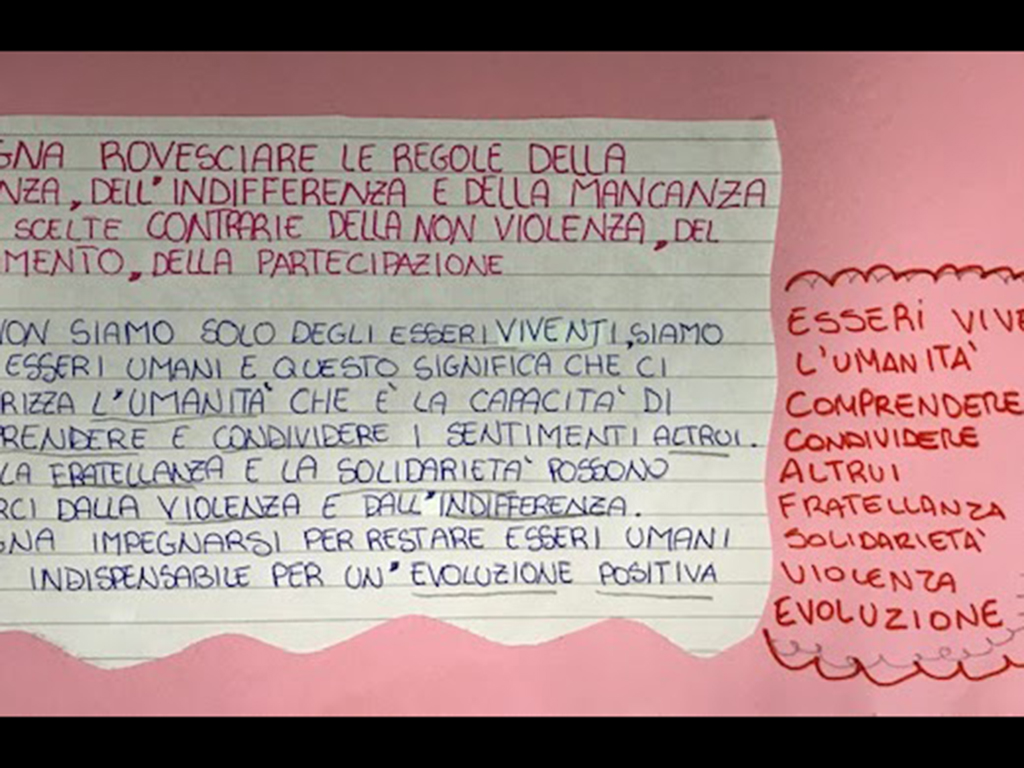 GNA ROVESCIARE LE REGOLE DELLA
NZA, DELL'INDIFFERENZA E DELLA MANCANZA
SCELTE CONTRARIE DELLA NON VIOLENZA, DEL
MENTO, DELLA PARTECIPAZIONE
NON SIAMO SOLO DEGLI ESSERI VIVENTI, SIAMO
ESSERI UMANI E QUESTO SIGNIFICA CHE CI
RIZZA L'UMANITA' CHE E' LA CAPACITA' DI
RENDERE E CONDIVIDERE I SENTIMENTI ALTRUI.
LA FRATELLANZA E LA SOLIDARIETA' POSSONO
RCI DALLA VIOLENZA E DALL'INDIFFERENZA.
GNA IMPEGNARSI PER RESTARE ESSERI UMANI
INDISPENSABILE PER UN' EVOLUZIONE POSITIVA
ESSERI VIVE
L'UMANITA'
COMPRENDERE
CONDIVIDERE
ALTRUI
FRATELLANZA
SOLIDARIETA'
VIOLENZA
EVOLUZIONE